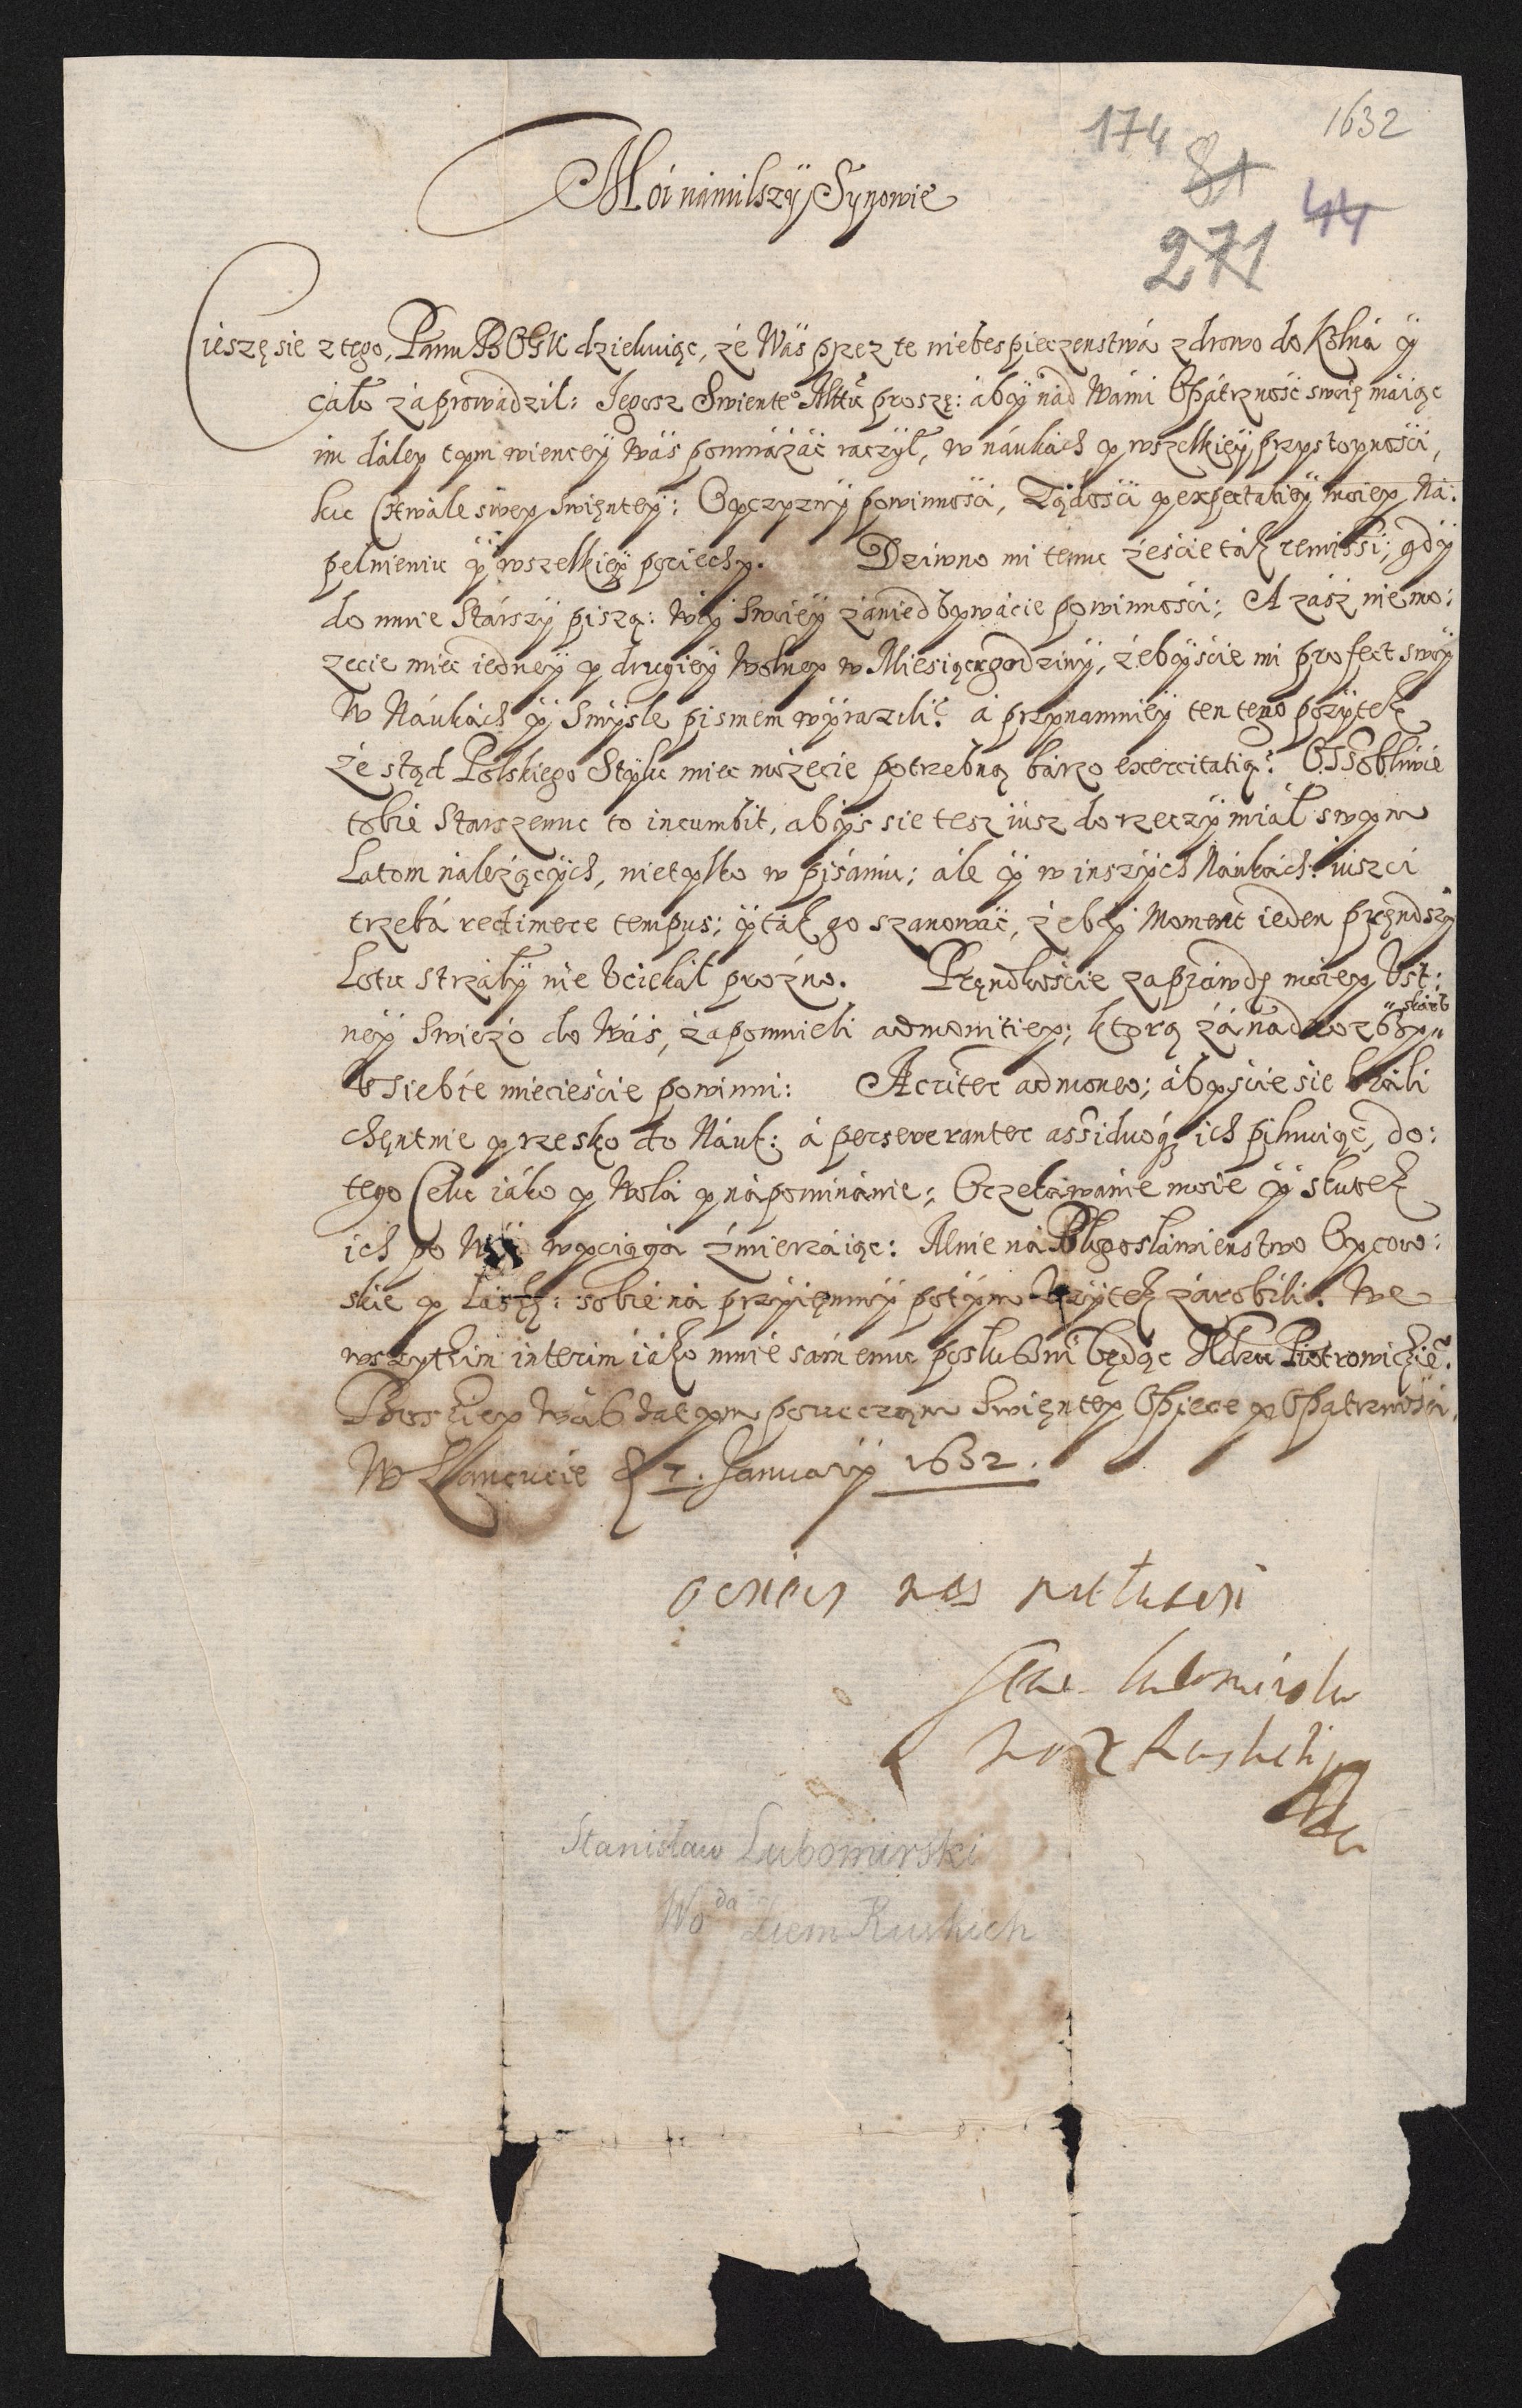 174 1632
81
44
271
Moi namilszÿ Synowie
Cieszę sie z tego, Panu BOGU dziekuiąc, źe Wás przez te niebespieczenstwá zdrowo do Kolná ÿ
cáło záprowádził: Iegosz Swiente° proszę: ábÿ nád Wámi Opátrzność swoię máiąc
im dáley tym wiencey Wás pomnáżáć raczÿł, w náukách y wszelkieÿ przystoynośći,
ku Chwale swey Swięntey: Oyczyzny powinnośći, Żądośći y expectatieÿ moiey Ná:
pełnieniu ÿ wszelkieÿ pociechy. Dziwno mi temu żeście ták remissi; gdÿ
do mnie Stárszÿ piszą: Wÿ Swoieÿ zániedbywácie powinnośći; A zász nie mo:
zecie miec iedneÿ y drugieÿ Wolney w Miesiącu godzinÿ, żebyście mi profect swóÿ
W Náukách ÿ Smÿsle pismem wÿrazili? á przynamnieÿ ten tego pożÿtek
że stąd Polskiego Stylu miec możecie potrzebną bárzo exercitatią? Ossobliwie
tobie Starszemu to incumbit, abÿs sie tesz iusz do rzeczÿ miáł swym
Latom náleżącÿch, nie tylko w pisániu; ále ÿ w inszÿch Náukách: iusz ci
trzebá redimere tempus; ÿ ták go szanowáć, żebÿ Moment ieden prędszÿ
Lotu strzałÿ nie Uciekáł prożno. Prędkoście zaprawdę moieÿ Ust:
neÿ Swieżo do Wás, zapomnieli admonitieÿ; ktorą zá nadrozszÿ
skárb
U siebie miećieście powinni: Acriter admoneo; ábyście sie bráli
chętnie y rzesko do Náuk: á perseveranter assiduóą ich pilnuiąc, do:
tego Celu iáko y Wolá y nápominánie; Oczekiwánie moie ÿ skutek
ich po wyciąga zmierzáiąc: Mnie ná Błogosłáwienstwo Oycow:
skie y Łáskę: sobie ná przÿiemnÿ potÿm Uzÿtek zárobili. We
wszytkim interim iáko mnie sámemu posłuszni będąc Piotrowickie°.
Boskiey Wás dáłym poruczám Swięntey Opiece y Opátrznośći.
W Łancucie d 7. Januarÿ 1632.
ociec was
Sta Lubomirski
Ruskich
Stanisław Lubomirski
Wo^da ziem Ruskich